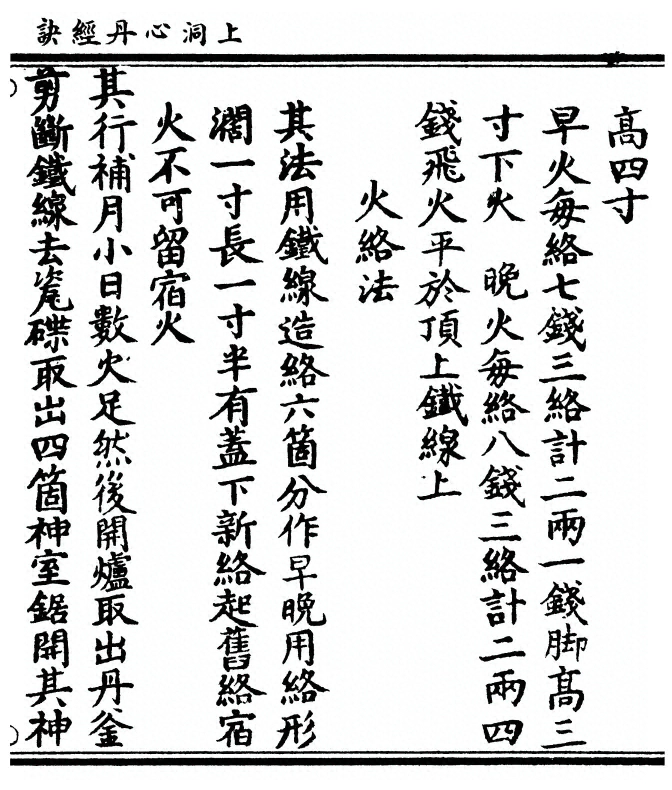 上洞心丹經訣
高四寸
早火每絡七錢三絡計二兩一錢脚高三
寸下火　晚火每絡八錢三絡計二兩四
錢飛火平於頂上鐵線上
火絡法
其法用鐵線造絡六箇分作早晚用絡形
濶一寸長一寸半有蓋下新絡起舊絡宿
火不可留宿火
其行補月小日數火足然後開爐取出丹釜
剪斷鐵線去瓷磼取出四箇神室鋸開其神